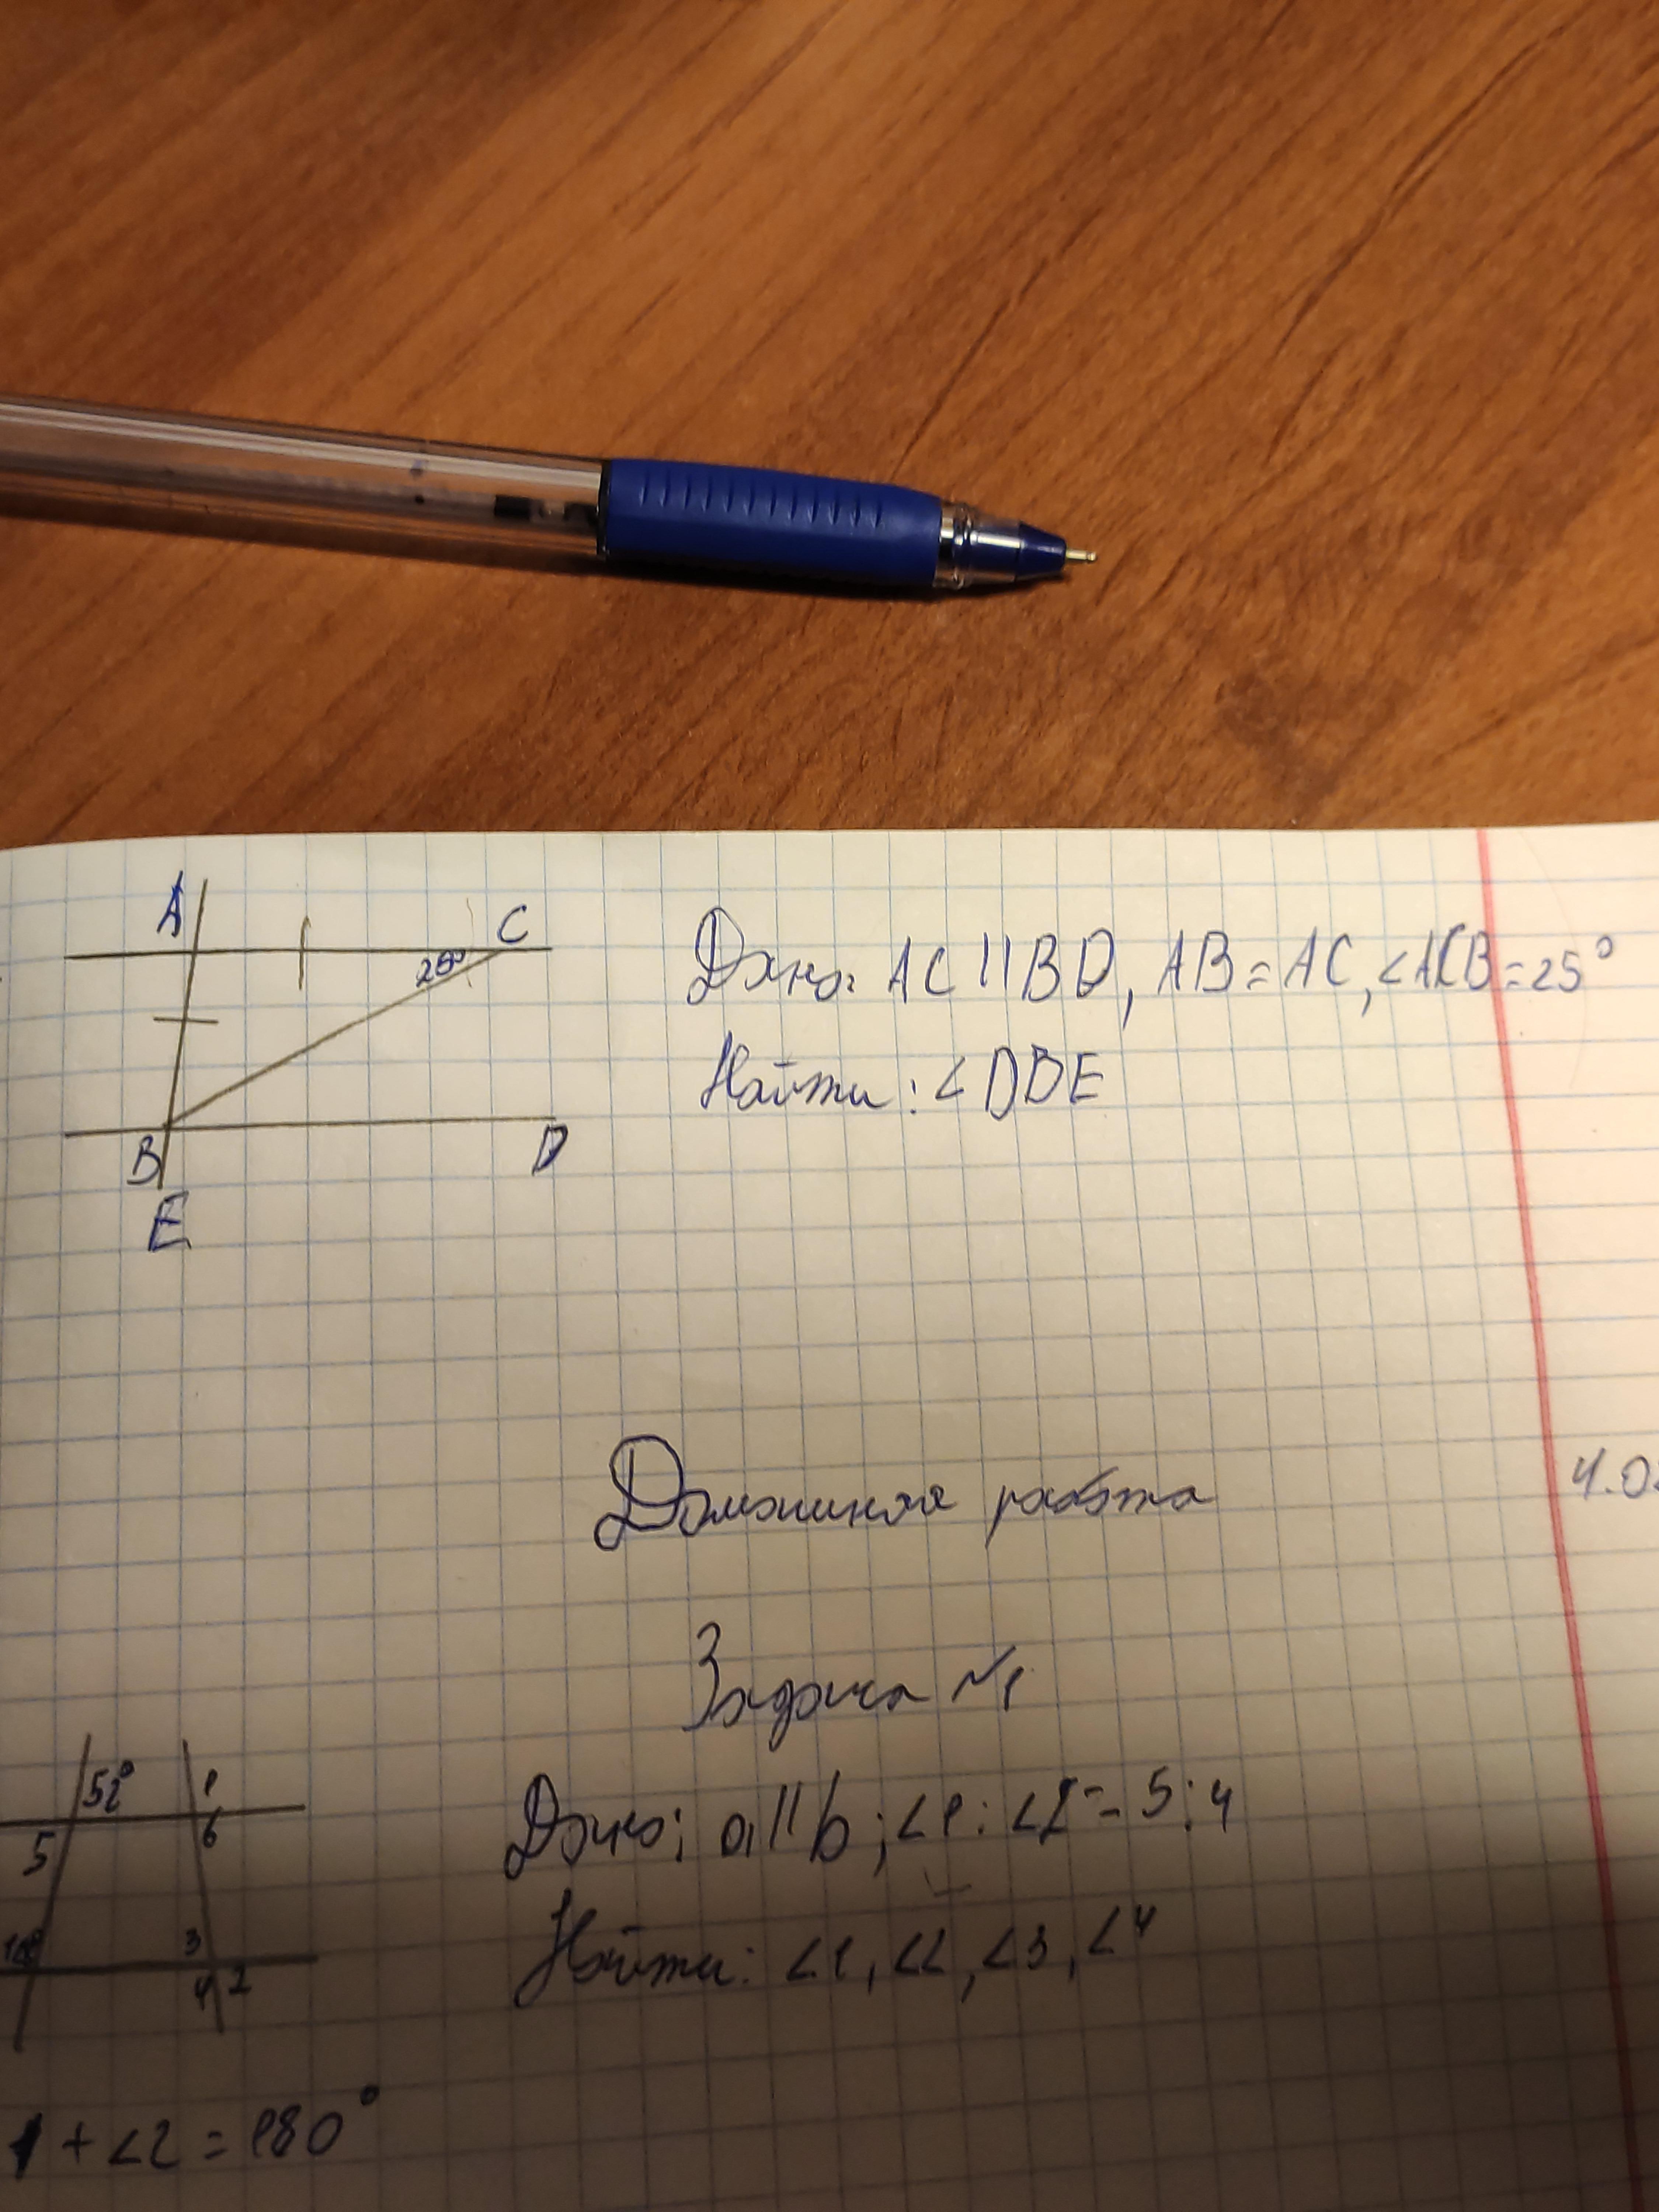 A
C
25°
Дано: AC || BD, AB = AC, <ACB = 25°
Найти: < DBE
B
D
E
Домашняя работа
4.0
Задача №1
52°
1
5
6
Дано: a || b; <1 : <2 = 5 : 4
3
4 2
Найти: <1, <2, <3, <4
1 + <2 = 180°